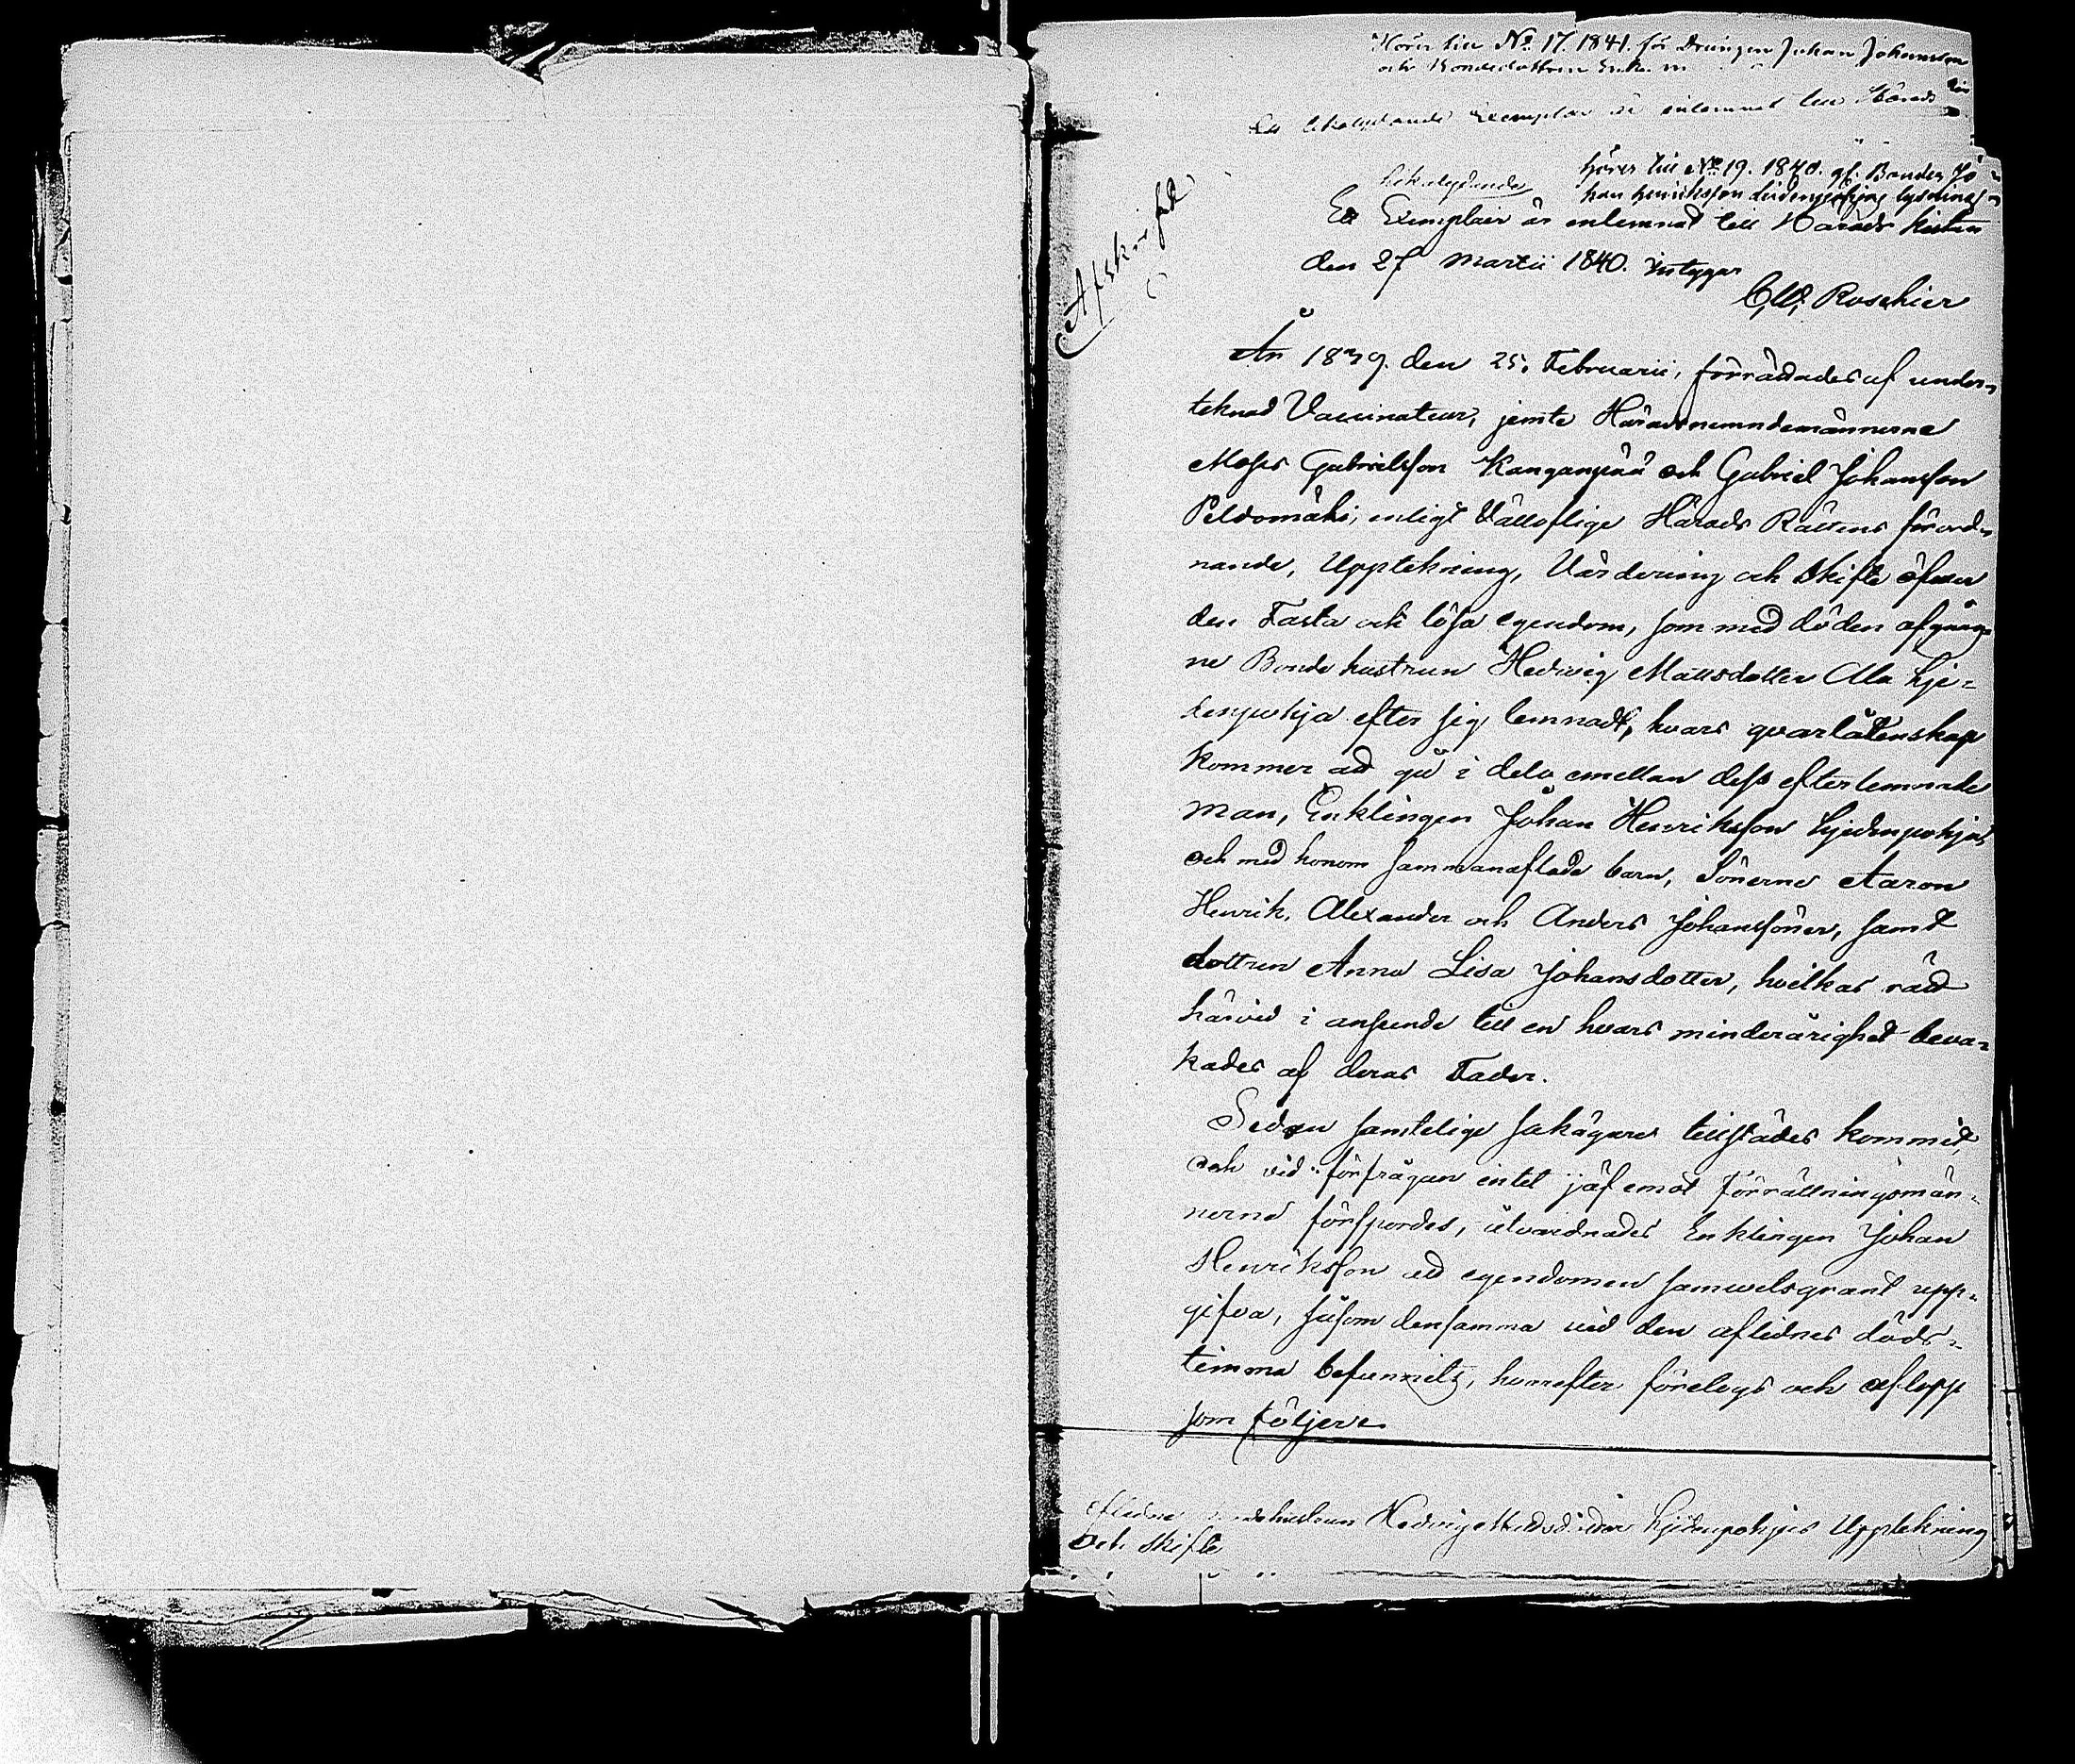 Hörer till No. 17. 1841. för Drängen Johan Johansson
och Bondedottren
Ett likalydande Exemplar är inlemnat till Härads
hörer till No. 19. 1840. gf. Bonden Jo-
han Henriksson lysning
likalydande
Ett Exemplair är inlemnat till Härads kistan
den 27 Martii 1840. intygar
C,W, Roschier
Afskrifvit
År 1839. den 25. Februarii, förrättades af under-
teknad Vaccinateur, jemte Häradsnemndemännerne
Moses Gabrielsson Kanganpää och Gabriel Johansson
Peldomäki, enligt Vällofliga Härads Rättens förord-
nande, Upptekning, Värdering och Skifte öfwer
den Fasta och lösa egendom, som med döden afgång-
ne Bonde hustrun Hedwig Mattsdotter Ala Hje-
denpohja efter sig lemnadt, hvars qvarlåtenskap
kommer att gå i delo emellan dess efterlemnade
man, Enklingen Johan Henriksson Hjedenpohja,
och med honom sammanaflade barn, Sönerne Aaron
Henrik, Alexander och Anders Johanssöner, samt
dottren Anna Lisa Johansdotter, hvilkas rätt
härvid i anseende till en hvars minderårighet beva-
kades af deras Fader.
Sedan samtelige sakägare tillstädes kommit,
och vid förfrågan intet jäf emot Förrättningsmän-
nerne förspordes, Enklingen Johan
Henriksson att egendomen samvetsgrant upp-
gifva, såsom densamma vid den aflidnes döds-
timma befunnits, hvarefter förelogs och aflopp
som följer.
Aflidne Bondehustrun Hedvig Mattsdotter Hjedenpohjas Upptekning
och Skifte